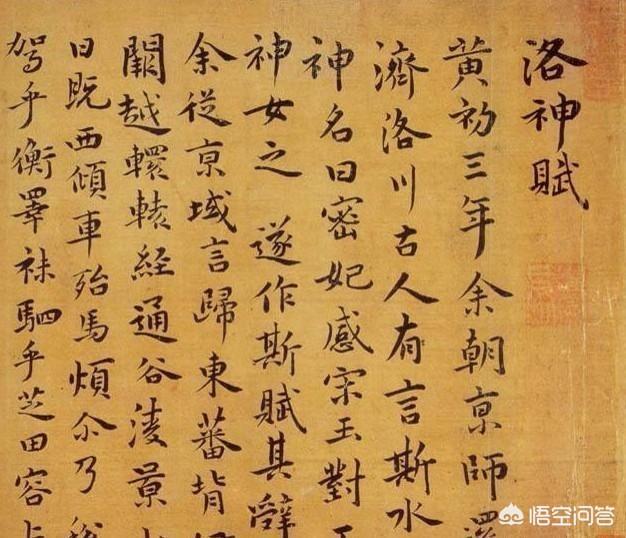 洛神賦
黄初三年余朝京師還
濟洛川古人有言斯水
神名曰宓妃感宋玉對
神女之 遂作斯賦其辭
余從京域言歸東蕃背
闕越轘轅經通谷陵景
日既西傾車殆馬煩尒乃
駕乎蘅皋秣駟乎芝田容
悟空问答